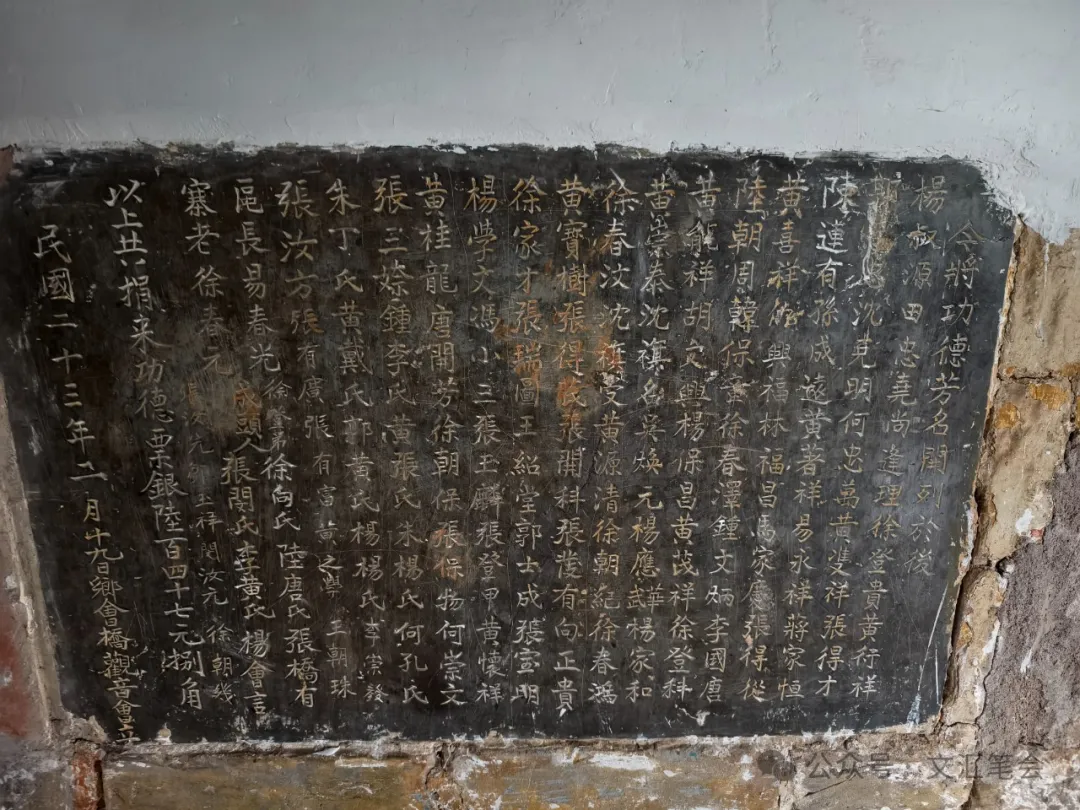 今將功德芳名開列於後
楊叔源田忠堯尚逢理徐登貴黃行祥
沈克明何忠萬黃雙祥張得才
陳蓮有孫成遠黃著祥易永祥蔣家恒
黃喜祥熊興福林福昌馬家慶張得從
陸朝周韓保臺徐春澤鍾文炳李國唐
黃能祥胡文興楊保昌黃茂祥徐登科
黃崇泰沈祺名吳煥元楊應武華楊家和
徐春汶沈旗雙黃源清徐朝紀徐春鴻
黃寶樹張得民張開科張茂有向正貴
徐家才張瑞圖王紹堂郭士成張室明
楊學文馮小三張玉麟張登甲黃懷祥
黃桂龍唐開芳徐朝保張保物何崇文
張三嫁鍾李氏黃張氏朱楊氏何孔氏
朱丁氏黃戴氏郭黃氏楊楊氏李崇
張汝方張有廣張有富黃之興王朝珠
區長易春光徐登第徐向氏陸唐氏張橋有
寨老徐春元成頭人張開氏李黃氏楊會言
元 玉祥 汝元 徐朝
以上共捐来功德票銀陸百四十七元捌角
民國二十三年二月十九日鄉會橋觀音會立
公众号 文正笔会